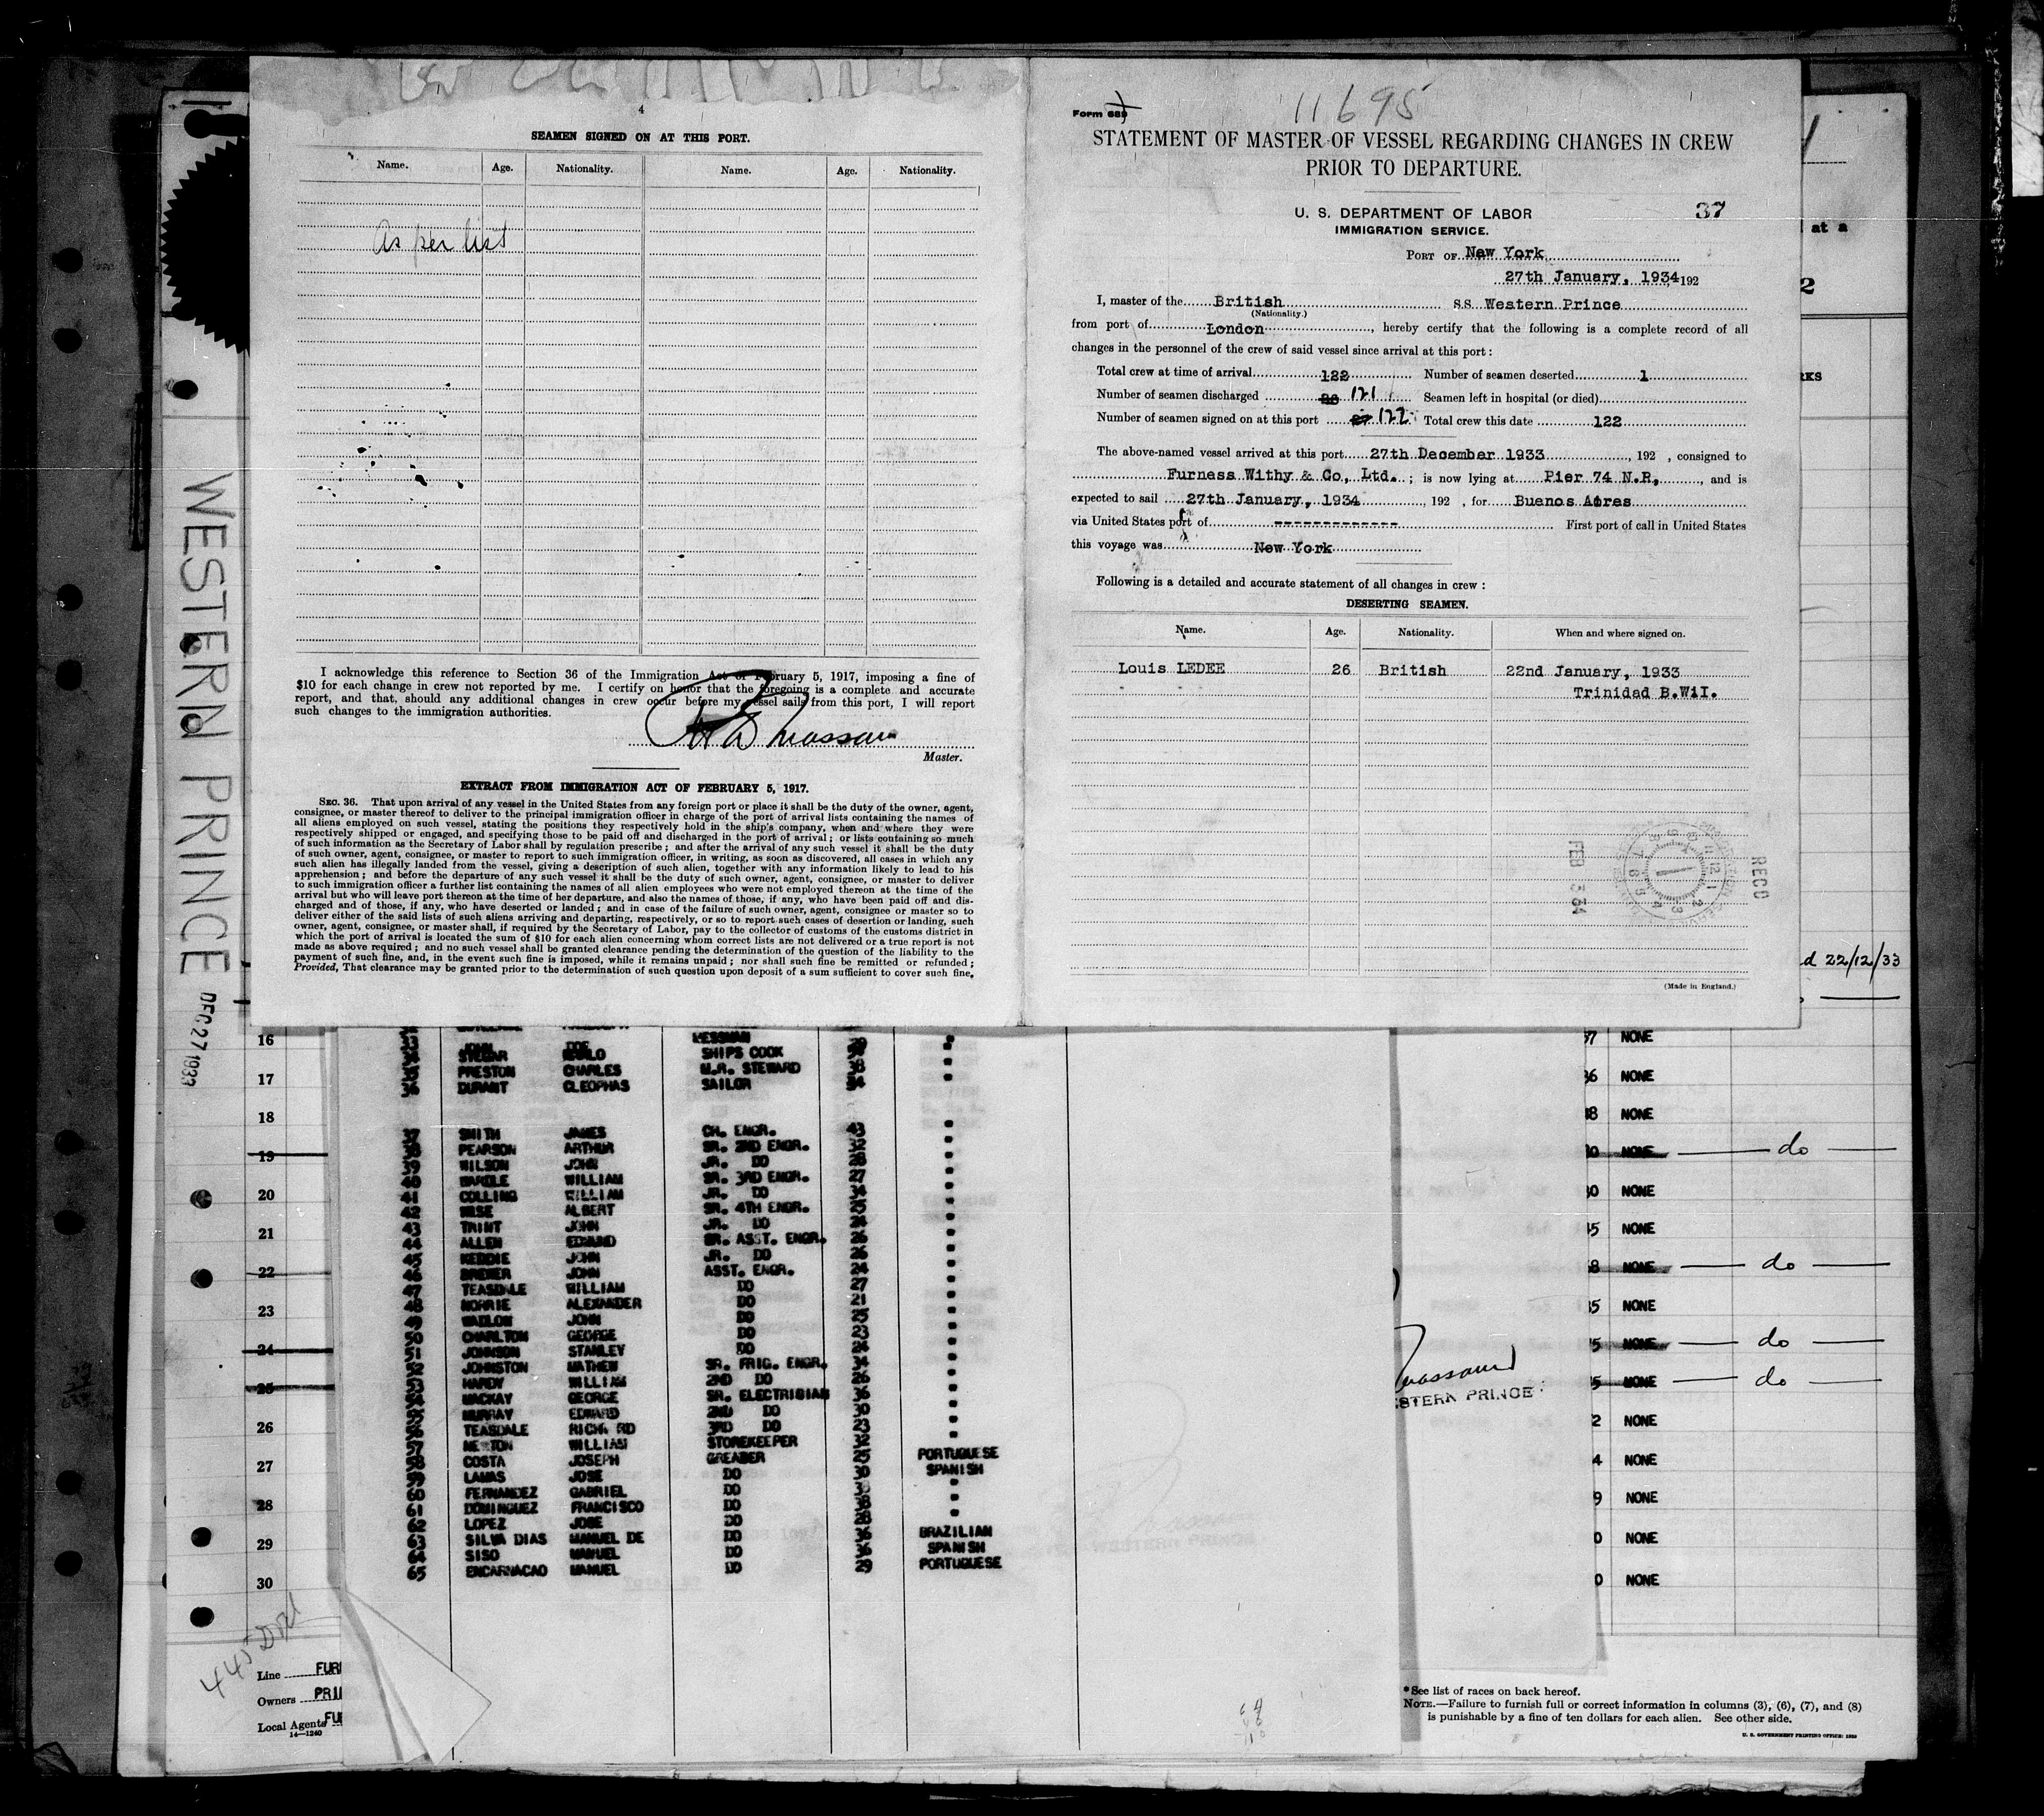 4
SEAMEN SIGNED ON AT THIS PORT.
Name. Age. Nationality. Name. Age. Nationality.
As per list
I acknowledge this reference to Section 36 of the Immigration Act of February 5, 1917, imposing a fine of
$10 for each change in crew not reported by me. I certify on honor that the foregoing is a complete and accurate
report, and that, should any additional changes in crew occur before my vessel sails from this port, I will report
such changes to the immigration authorities.
Master.
EXTRACT FROM IMMIGRATION ACT OF FEBRUARY 5, 1917.
SEC. 36. That upon arrival of any vessel in the United States from any foreign port or place it shall be the duty of the owner, agent,
consignee, or master thereof to deliver to the principal immigration officer in charge of the port of arrival lists containing the names of
all aliens employed on such vessel, stating the positions they respectively hold in the ship's company, when and where they were
respectively shipped or engaged, and specifying those to be paid off and discharged in the port of arrival; or lists containing so much
of such information as the Secretary of Labor shall by regulation prescribe; and after the arrival of any such vessel it shall be the duty
of such owner, agent, consignee, or master to report to such immigration officer, in writing, as soon as discovered, all cases in which any
such alien has illegally landed from the vessel, giving a description of such alien, together with any information likely to lead to his
apprehension; and before the departure of any such vessel it shall be the duty of such owner, agent, consignee, or master to deliver
to such immigration officer a further list containing the names of all alien employees who were not employed thereon at the time of the
arrival but who will leave port thereon at the time of her departure, and also the names of those, if any, who have been paid off and dis-
charged and of those, if any, who have deserted or landed; and in case of the failure of such owner, agent, consignee or master so to
deliver either of the said lists of such aliens arriving and departing, respectively, or so to report such cases of desertion or landing, such
owner, agent, consignee, or master shall, if required by the Secretary of Labor, pay to the collector of customs of the customs district in
which the port of arrival is located the sum of $10 for each alien concerning whom correct lists are not delivered or a true report is not
made as above required; and no such vessel shall be granted clearance pending the determination of the question of the liability to the
payment of such fine, and, in the event such fine is imposed, while it remains unpaid; nor shall such fine be remitted or refunded;
Provided, That clearance may be granted prior to the determination of such question upon deposit of a sum sufficient to cover such fine.
Form 689
11695
STATEMENT OF MASTER OF VESSEL REGARDING CHANGES IN CREW
PRIOR TO DEPARTURE.
U. S. DEPARTMENT OF LABOR
IMMIGRATION SERVICE.
37
PORT OF New York
27th January, 1934 192
I, master of the British S.S. Western Prince
(Nationality.)
from port of London, hereby certify that the following is a complete record of all
changes in the personnel of the crew of said vessel since arrival at this port:
Total crew at time of arrival 122 Number of seamen deserted 1
Number of seamen discharged 121 Seamen left in hospital (or died)
Number of seamen signed on at this port 122 Total crew this date 122
The above-named vessel arrived at this port 27th December 1933, 192 , consigned to
Furness Withy & Co, Ltd. ; is now lying at Pier 74 N.R, , and is
expected to sail 27th January, 1934, 192 , for Buenos Aires
via United States port of ------------- First port of call in United States
this voyage was New York
Following is a detailed and accurate statement of all changes in crew:
DESERTING SEAMEN.
Name. Age. Nationality. When and where signed on.
Louis LEDEE 26 British 22nd January, 1933
Trinidad B.WiI.
RECD
FEB 3 34
(Made in England.)
WESTERN PRINCE
DEC 27 1933
at a
2
RKS
d 22/12/33
MESSMAN
SHIPS COOK
PRESTON CHARLES M.R. STEWARD 38 "
36 DURANT CLEOPHAS SAILOR "
37 SMITH JAMES CH. ENGR. 43 "
38 PEARSON ARTHUR SR. 2ND ENGR. 32 "
39 WILSON JOHN JR. DO 28 "
40 WARDLE WILLIAM SR. 3RD ENGR. 27 "
41 COLLING WILLIAM JR. DO 34 "
42 ALBERT SR. 4TH ENGR. 25 "
43 TRINT JOHN JR. DO 24 "
44 ALLEN EDWARD SR. ASST. ENGR. 26 "
45 KEDDIE JOHN JR. DO 26 "
46 JOHN ASST. ENGR. 24 "
47 TEASDALE WILLIAM DO 27 "
48 NORRIE ALEXANDER DO 21 "
49 JOHN DO 25 "
50 CHARLTON GEORGE DO 23 "
51 JOHNSON STANLEY DO 24 "
52 JOHNSTON MATHEW SR. FRIG. ENGR. 34 "
53 HARDY WILLIAM 2ND DO 26 "
54 MACKAY GEORGE SR. ELECTRISIAN 36 "
55 MURRAY EDWARD 2ND DO 30 "
56 TEASDALE RICHARD 3RD DO 23 "
57 WILLIAM STOREKEEPER 32 "
58 COSTA JOSEPH GREASER 25 PORTUGUESE
59 LAMAS JOSE DO 30 SPANISH
60 FERNANDEZ GABRIEL DO "
61 DOMINGUEZ FRANCISCO DO 38 "
62 LOPEZ JOSE DO 28 "
63 SILVA DIAS MANUEL DE DO 36 BRAZILIAN
64 SISO MANUEL DO 36 SPANISH
65 ENCARNACAO MANUEL DO 29 PORTUGUESE
16
17
18
19
20
21
22
23
24
25
26
27
28
29
30
37 NONE
36 NONE
38 NONE
30 NONE do
30 NONE
35 NONE
8 NONE do
35 NONE
5 NONE do
5 NONE do
2 NONE
4 NONE
9 NONE
0 NONE
0 NONE
STERN PRINCE
Line FUR
Owners PRI
Local Agents FU
14—1240
*See list of races on back hereof.
NOTE.—Failure to furnish full or correct information in columns (3), (6), (7), and (8)
is punishable by a fine of ten dollars for each alien. See other side.